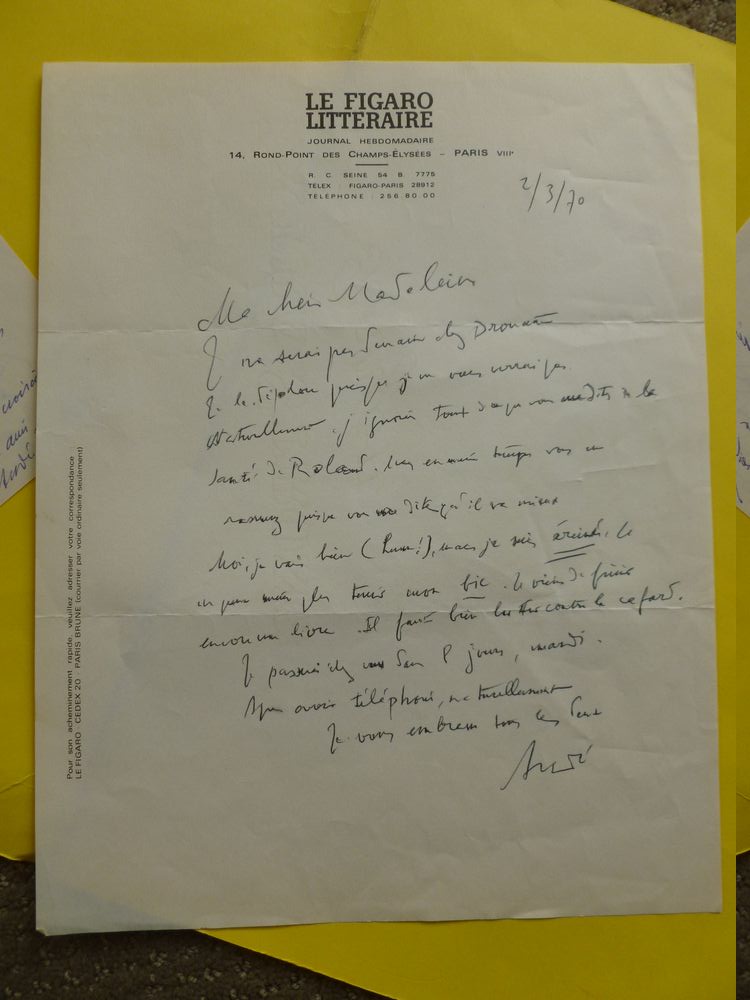 LE FIGARO
LITTERAIRE
JOURNAL HEBDOMADAIRE
14, ROND-POINT DES CHAMPS-ÉLYSÉES - PARIS VIIIe
R. C. SEINE 54 B 7775
TELEX : FIGARO-PARIS 28912
TELEPHONE : 256 80 00
2/3/70
Ma chère Madeleine
Je ne serai pas demain chez Drouant
Je le puisque je ne vous verrai pas.
Naturellement, j'ignorais tout de ce que vous me dites de la
santé de Roland. Mais en même temps vous me
rassurez puisque vous me dites qu'il va mieux
Moi, je vais bien (hum!), mais je suis éreinté. Je
ne peux même plus tenir mon bic. Je viens de finir
encore un livre. Il faut bien lutter contre le cafard.
Je passerai chez vous dans 8 jours, mardi.
Après avoir téléphoné, naturellement
Je vous embrasse tous les deux
André
Pour son acheminement rapide, veuillez adresser votre correspondance :
LE FIGARO - CEDEX 20 - PARIS BRUNE (courrier par voie ordinaire seulement)